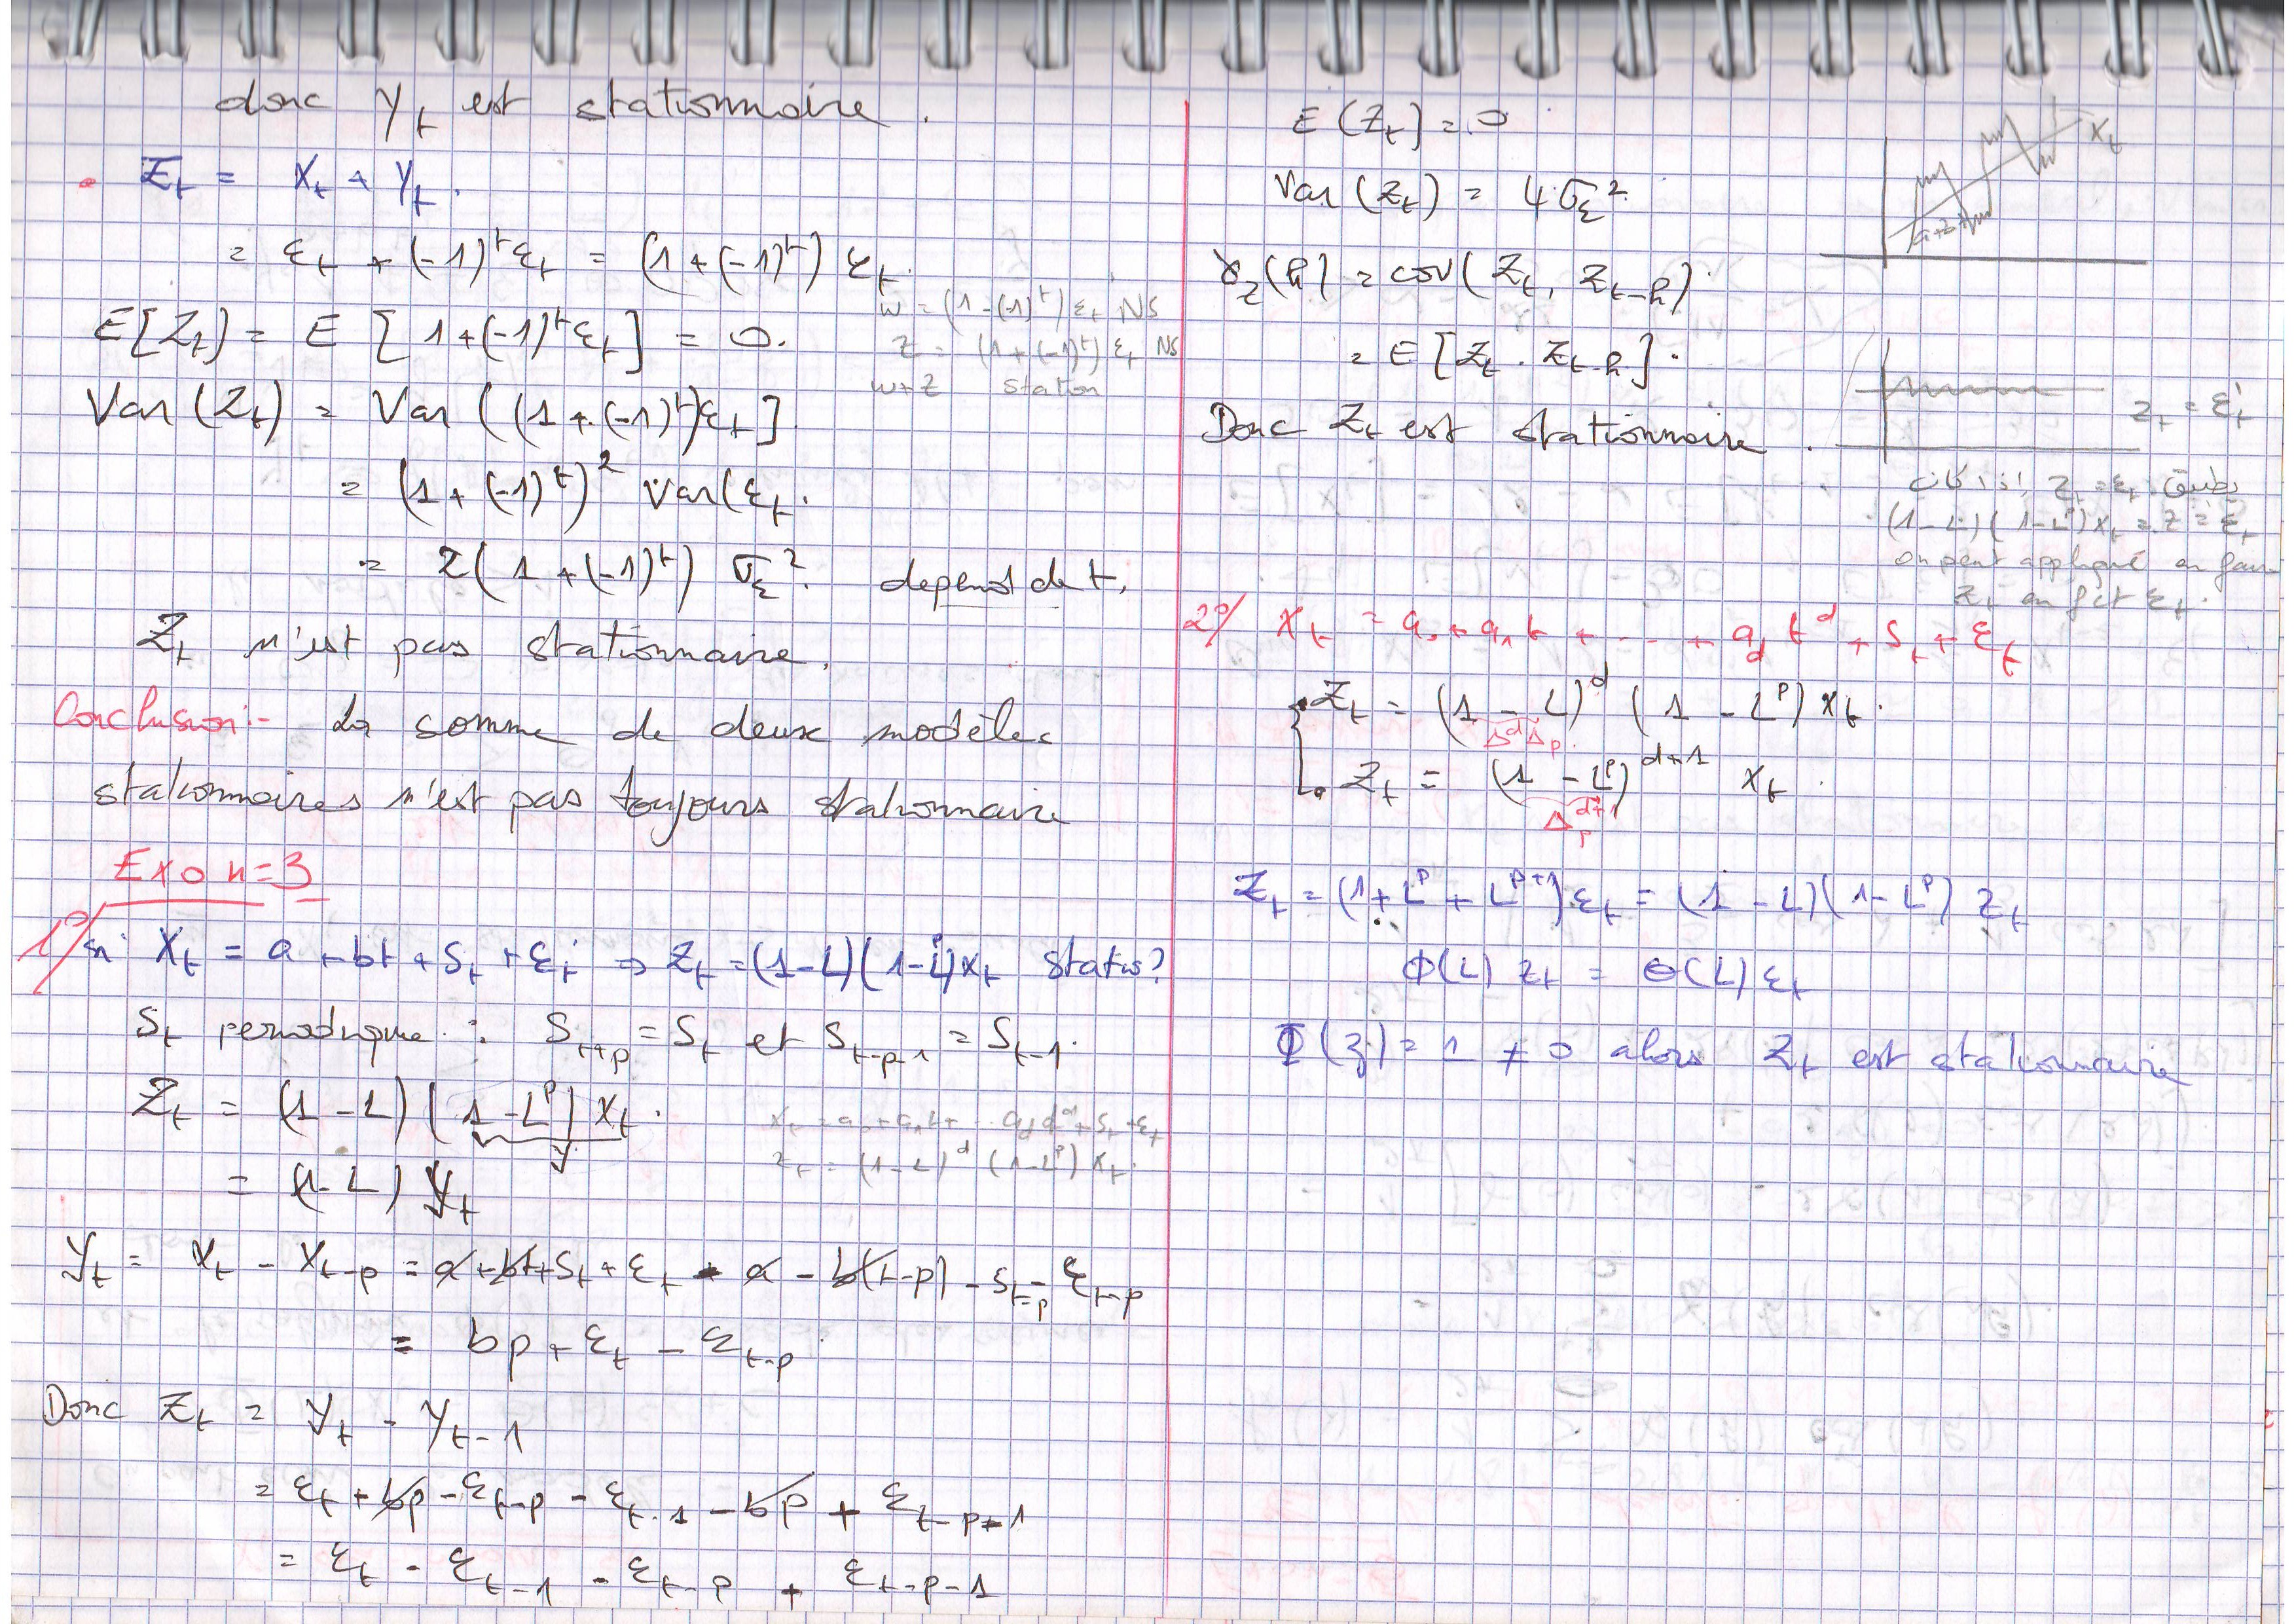 donc Yt est stationnaire.
Zt = Xt + Yt.
= εt + (-1)^t εt = (1 + (-1)^t) εt.
E[Zt) = E [1+(-1)^t εt] = 0.
w = (1-(-1)^t) εt NS
Z = (1+(-1)^t) εt NS
w+Z station
Var (Zt) = Var ((1 + (-1)^t)εt].
= (1 + (-1)^t)² Var(εt.
= 2(1 + (-1)^t) σε². depend de t.
Zt n'est pas stationnaire.
Conclusion:- La somme de deux modèles
stationnaires n'est pas toujours stationnaire
Exo n=3
1°/ si Xt = a + bt + St + εt ⇒ Zt = (1-L)(1-L^p)Xt statio?
St periodique : St+p = St et St-p-1 = St-1.
Zt = (1-L)(1-L^p) Xt.
y
Xt = a0 + a1t + ... ad t^d + St + εt
Zt = (1-L)^d (1-L^p) Xt.
= (1-L) Yt
Yt = Xt - Xt-p = a+bt+St+εt - a - b(t-p) - St-p - εt-p
= bp + εt - εt-p
Donc Zt = Yt - Yt-1
= εt + bp - εt-p - εt-1 - bp + εt-p-1
= εt - εt-1 - εt-p + εt-p-1
E(Zt] = 0
Var (Zt) = 4σε².
γz(h) = cov(Zt, Zt-h)
= E[Zt . Zt-h].
Donc Zt est stationnaire.
Xt
a+bt
Zt = εt
اذا كان Zt = εt
(1-L)(1-L^p)Xt = Z = εt
on peut appliqué
Zt en fct εt.
2°/ Xt = a0 + a1t + ... + ad t^d + St + εt
Zt = (1 - L)^d (1 - L^p) Xt.
Δ^d Δp.
Zt = (1 - L^p)^d+1 Xt.
Δp^d+1
Zt = (1 + L^p + L^p+1) εt = (1 - L)(1 - L^p) Zt
Φ(L) Zt = Θ(L) εt
Φ(z) = 1 ≠ 0 alors Zt est stationnaire